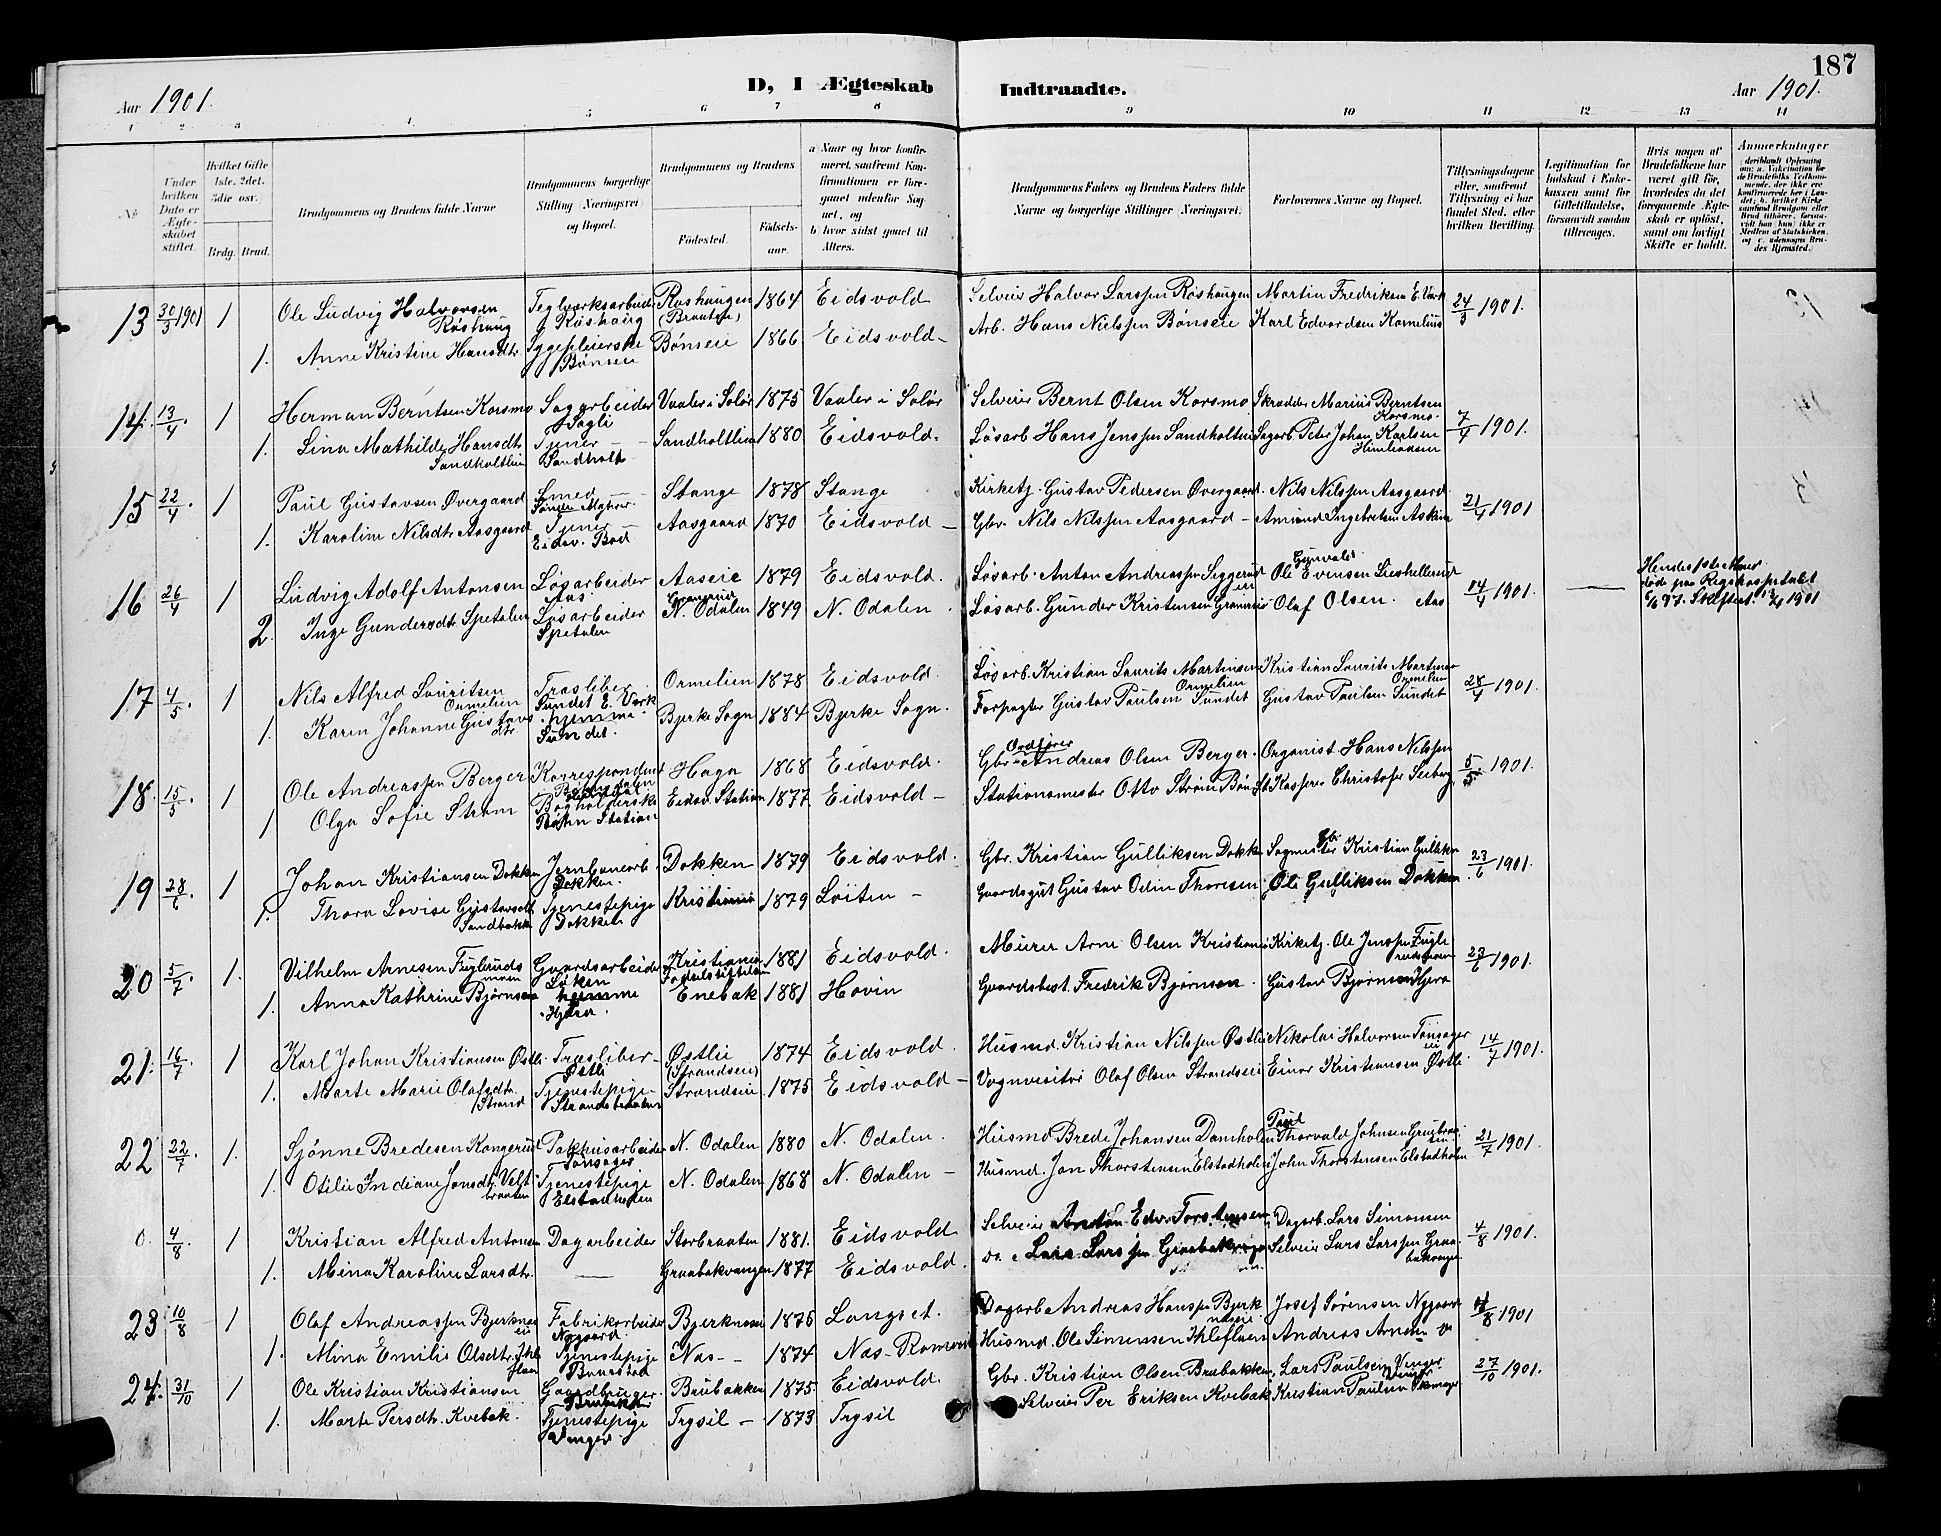 187
Aar 1901.
D, I Ægteskab Indtraadte.
Aar 1901.
1 2 3 4 5 6 7 8 9 10 11 12 13 14
No
Under hvilken Dato er Ægteskabet stiftet.
Hvilket Gifte 1ste, 2det, 3die osv.
Brdg. Brud.
Brudgommens og Brudens fulde Navne
Brudgommens borgerlige Stilling (Næringsvei) og Bopæl.
Brudgommens og Brudens
Fødested. Fødselsaar.
a Naar og hvor konfirmeret, saafremt Konfirmationen er foregaaet udenfor Sognet, og
b hvor sidst gaaet til Alters.
Brudgommens Faders og Brudens Faders fulde Navne og borgerlige Stillinger (Næringsvei).
Forlovernes Navne og Bopæl.
Tillysningsdagene eller, saafremt Tillysning ei har fundet Sted, efter hvilken Bevilling.
Legitimation for Indskud i Enkekassen samt for Giftetilladelse, forsaavidt saadan tiltrænges.
Hvis nogen af Brudefolkene har været gift før, hvorledes da det foregaaende Ægteskab er opløst, samt om lovligt Skifte er holdt.
Anmærkninger
13 30/3 1901 1 Ole Ludvig Halvorsen Røshaug Teglværksarbeid. Røshaug Røshaugen (Braaten) 1864 Eidsvold Selveier Halvor Larssen Røshaugen Martin Fredriksen E. Værk 24/3 1901.
1. Anne Kristine Hansdtr. Sygepleierske Bønseie Bønseie 1866 Eidsvold Arb. Hans Nilssen Bønseie Karl Edvardsen Kornelius
14. 13/4. 1 Herman Berntsen Korsmo Sagarbeider Sagli Vaaler i Solør 1875 Vaaler i Solør Selveier Bernt Olsen Korsmo Skrædder Marius Berntsen Korsmo. 7/4 1901.
1. Lina Mathilde Hansdtr. Sandholtlien Tjener Sandholt Sandholtlien 1880 Eidsvold. Løsarb Hans Jenssen Sandholtlien Sagarb. Peter Johan Karlsen
15 22/4 1 Paul Gustavsen Øvergaard Smed Stange 1878 Stange Kirketj. Gustav Pedersen Øvergaard. Nils Nilssen Aasgaard. 21/4 1901
1. Karoline Nilsdtr Aasgaard Tjener Eidsv. Bad Aasgaard 1870 Eidsvold Gbr. Nils Nilssen Aasgaard Amund Ingebretsen
16 26/4 1 Ludvig Adolf Antonsen Løsarbeider Aas Aaseie 1879 Eidsvold. Løsarb. Anton Andreassen Ole Gunvald Evensen 14/4 1901.
Hendes 1ste Mand døde paa Rigshospitalet
2. Inge Gundersdtr Spetalen Løsarbeider Spetalen N. Odalen 1849 N. Odalen Løsarb. Gunder Kristensen Olaf Olsen. Aas
17 4/5 1 Nils Alfred Lauritsen Ormelien Træsliber Sundet E. Værk Ormelien 1878 Eidsvold. Løsarb. Kristian Laurits Martinsen Ormelien Kristian Laurits Martinsen Ormelien 28/4 1901.
1. Karen Johanne Gustavsdtr. hjemme Sundet Bjerke Sogn 1884 Bjerke Sogn. Forpagter Gustav Paulsen Sundet Gustav Paulsen Sundet
18. 15/5. 1 Ole Andreassen Berger Korrespondent Haga 1868 Eidsvold. Gbr. Ordfører Andreas Olsen Berger. Organist Hans Nilssen 5/5. 1901.
1 Olga Sofie Strøm Bogholderske Bøhn Station Eidsv. Station 1877 Eidsvold Stationsmester Otto Strøm Bøn St Kasserer Christofer Seeberg
19 28/6 1 Johan Kristiansen Dokken Jernbanearb. Dokken. Dokken 1879 Eidsvold. Gbr. Kristian Gulliksen Dokken Sagmester Kristian Gulliksen 23/6 1901.
1. Thora Lovise Gustavsdtr Sandbakken Tjenestepige Dokken Kristiania 1879 Løiten Gaardsgut Gustav Odin Thoresen Ole Gulliksen Dokken
20 5/7. 1. Vilhelm Arnesen Fuglerudsmoen Gaardsarbeider Løken Kristiania Fødselsstiftelsen 1881 Eidsvold. Murer Arne Olsen Kristiania Kirketj. Ole Jenssen Fuglerudsmoen 23/6 1901.
1. Anna Kathrine Bjørnsen hjemme Hjera. Enebak 1881 Hovin Gaardsbest. Fredrik Bjørnson. Gustav Bjørnson Hjera
21. 16/7 1 Karl Johan Kristiansen Østli. Træsliber Østli Østlie (Strandseie) 1874 Eidsvold. Husmd. Kristian Nilssen Østlie Nikolai Halvorsen Tønsager 14/7 1901.
1. Marte Marie Olafsdtr. Strand Tjenestepige Strandseie 1875 Eidsvold Vognvisitør Olaf Olsen Strandseie Einar Kristiansen Østli
22 22/7 1. Sjønne Bredesen Kongerud Pakhusarbeider Tønsager N. Odalen 1880 N. Odalen. Husmd Brede Johansen Damholen Paul Thorvald Johnsen 21/7 1901.
1. Otilie Indiane Jonsdtr. Veltbraaten Tjenestepige N. Odalen 1868 N. Odalen Husmd. Jon Thorstensen Elstadholen John Thorstensen Elstadholen
0. 4/8. 1 Kristian Alfred Antonsen Dagarbeider Storbraaten 1881. Eidsvold Selveier Anton Edv. Torstensen Dagarb. Lars Simonsen 4/8 1901.
1. Mina Karoline Larsdtr. Graabakvangen 1877 Eidsvold. do. Lars Larssen Graabakvangen Selveier Lars Larssen Graabakvangen
23 10/8 1 Olaf Andreassen Bjerkneseie Fabrikarbeider Nygaard. Bjerkneseie 1875 Langset. Dagarb Andreas Hanssen Bjerkneseie Josef Sørensen Nygaard 4/8 1901
1. Mina Emilie Olsdtr. Tjenestepige Næs 1874 Næs - Romerike Husmd. Ole Simensen Andreas
24. 31/10 1 Ole Kristian Kristiansen Gaardbruger. Brubakken Brubakken 1875. Eidsvold. Gbr. Kristian Olsen Brubakken. Lars Paulsen Venger 27/10 1901.
1. Marte Persdtr. Kvebak. Tjenestepige Venger Trysil 1873 Trysil Selveier Per Eriksen Kvebak Kristian Paulsen